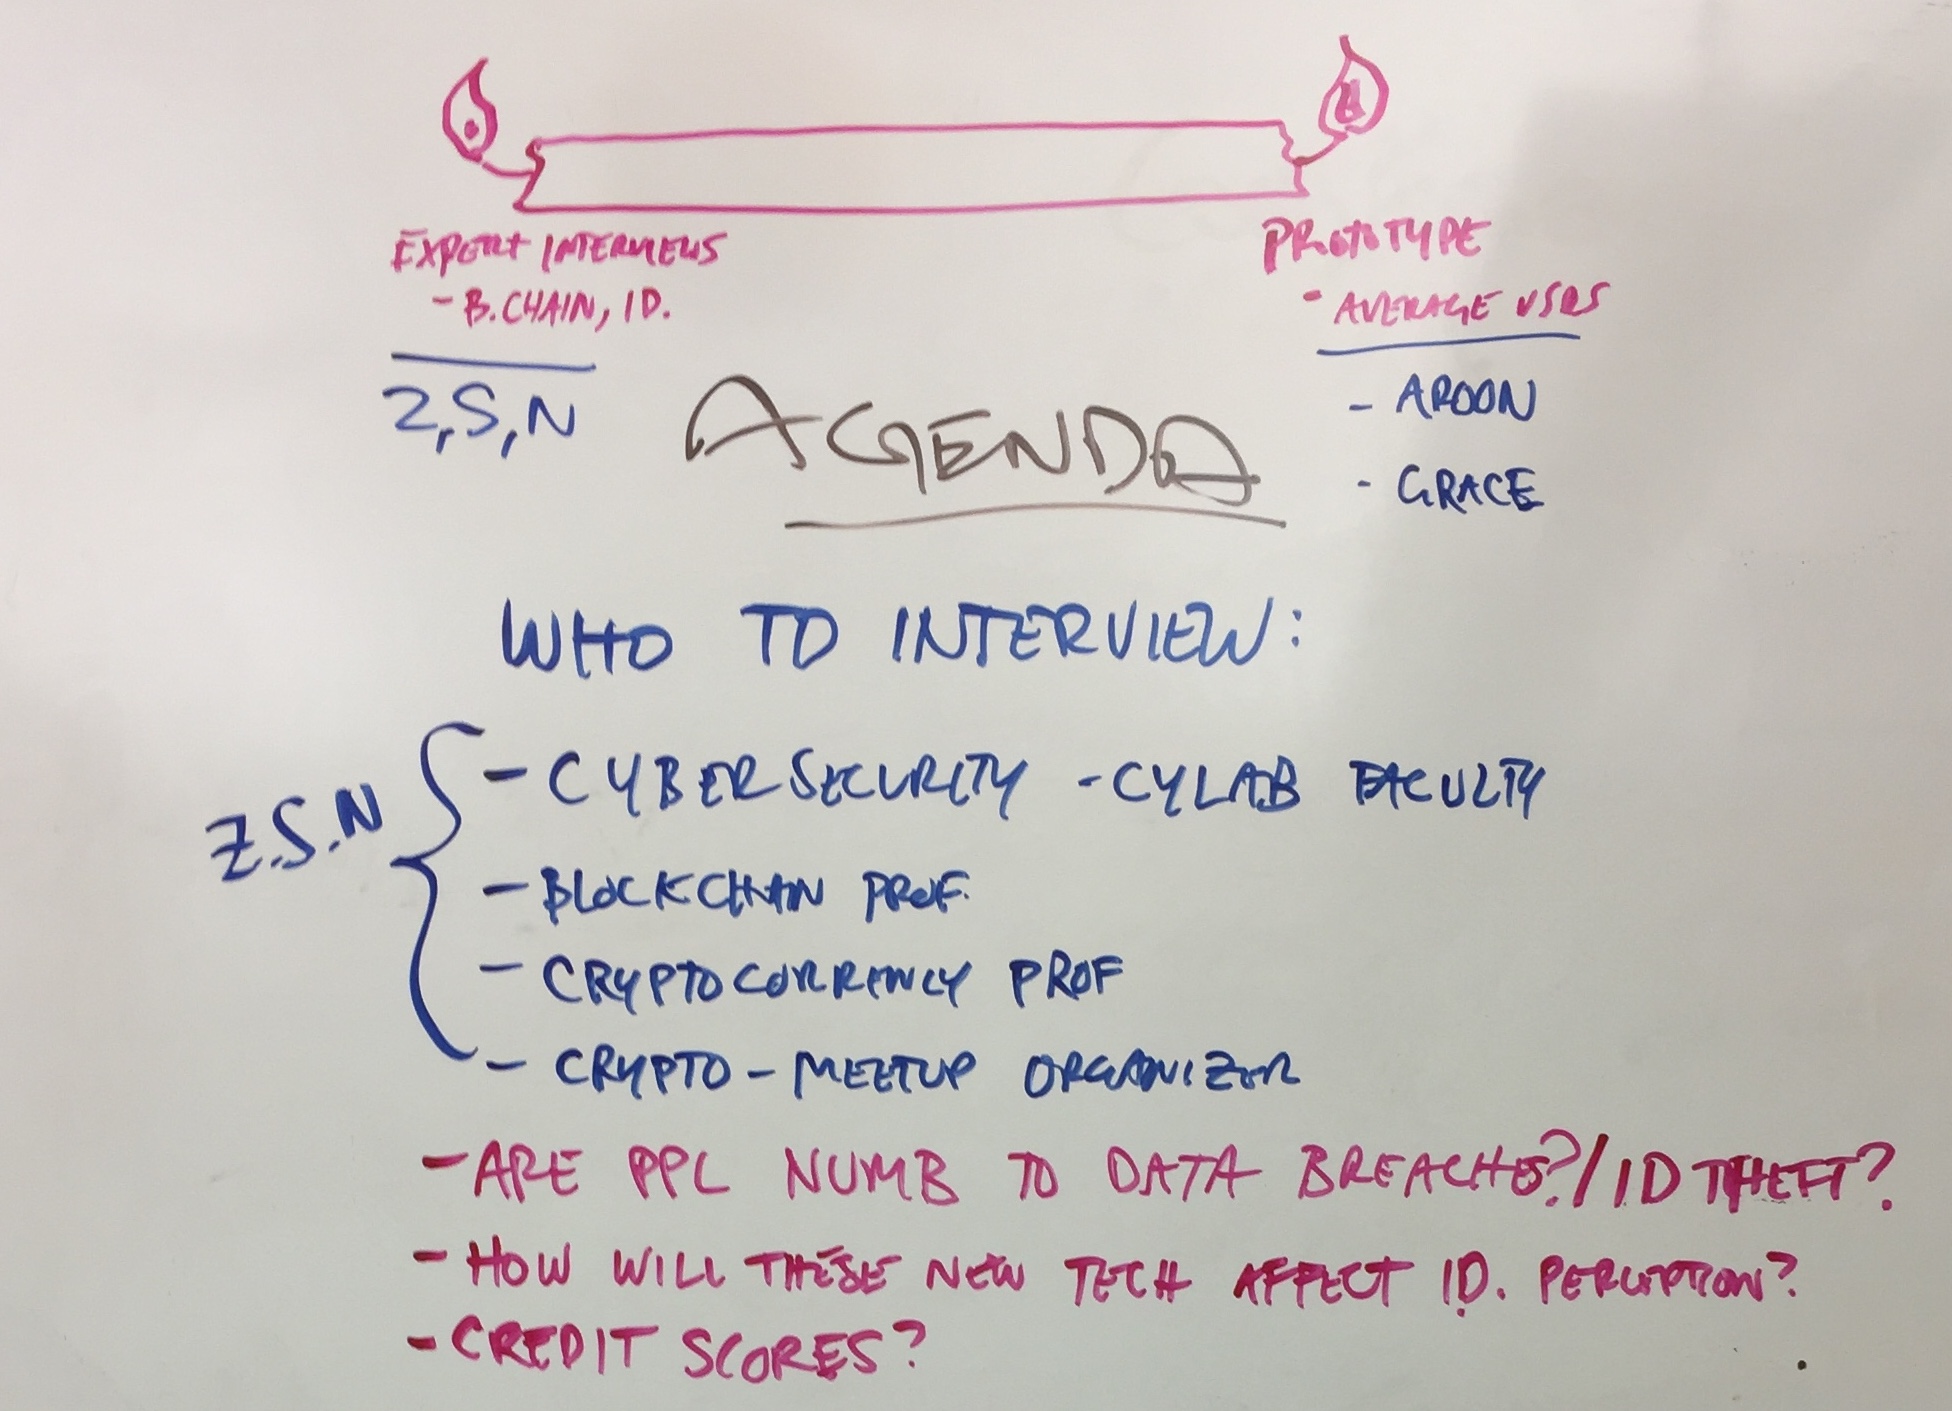 EXPERT INTERVIEWS
- B.CHAIN, ID.
Z,S,N
PROTOTYPE
- AVERAGE USRS
- AROON
- GRACE
AGENDA
WHO TO INTERVIEW:
Z.S.N
- CYBERSECURITY - CYLAB FACULTY
- BLOCKCHAIN PROF.
- CRYPTOCURRENCY PROF
- CRYPTO - MEETUP ORGANIZER
- ARE PPL NUMB TO DATA BREACHES?/ID THEFT?
- HOW WILL THESE NEW TECH AFFECT ID. PERCEPTION?
- CREDIT SCORES?